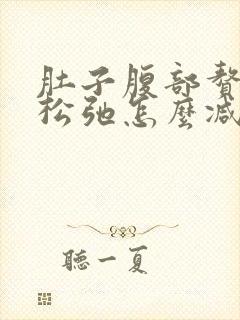 肚子腹部赘
松弛怎麽减
聽一夏